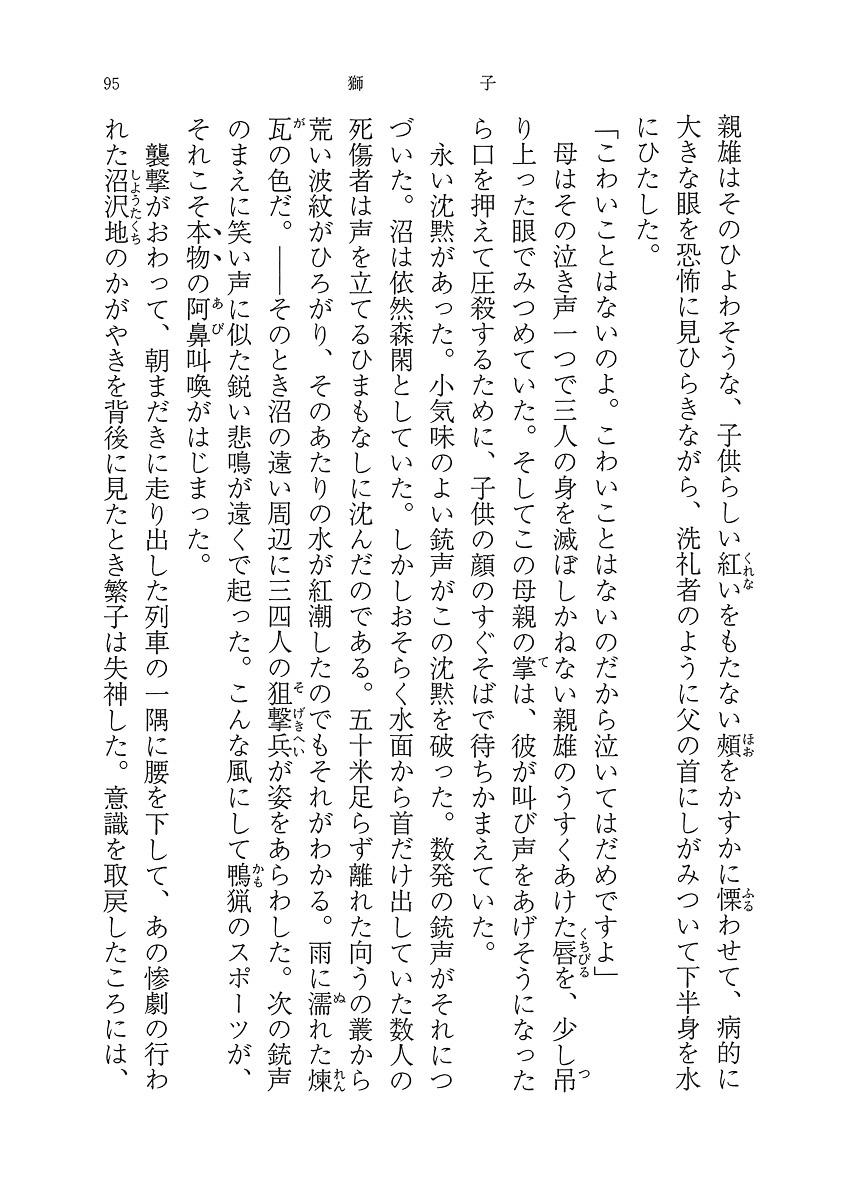 95
獅子
親雄はそのひよわそうな、子供らしい紅いをもたない頰をかすかに慄わせて、病的に
大きな眼を恐怖に見ひらきながら、洗礼者のように父の首にしがみついて下半身を水
にひたした。
「こわいことはないのよ。こわいことはないのだから泣いてはだめですよ」
母はその泣き声一つで三人の身を滅ぼしかねない親雄のうすくあけた唇を、少し吊
り上った眼でみつめていた。そしてこの母親の掌は、彼が叫び声をあげそうになった
ら口を押えて圧殺するために、子供の顔のすぐそばで待ちかまえていた。
永い沈黙があった。小気味のよい銃声がこの沈黙を破った。数発の銃声がそれにつ
づいた。沼は依然森閑としていた。しかしおそらく水面から首だけ出していた数人の
死傷者は声を立てるひまもなしに沈んだのである。五十米足らず離れた向うの叢から
荒い波紋がひろがり、そのあたりの水が紅潮したのでもそれがわかる。雨に濡れた煉
瓦の色だ。――そのとき沼の遠い周辺に三四人の狙撃兵が姿をあらわした。次の銃声
のまえに笑い声に似た鋭い悲鳴が遠くで起った。こんな風にして鴨猟のスポーツが、
それこそ本物の阿鼻叫喚がはじまった。
襲撃がおわって、朝まだきに走り出した列車の一隅に腰を下して、あの惨劇の行わ
れた沼沢地のかがやきを背後に見たとき繁子は失神した。意識を取戻したころには、